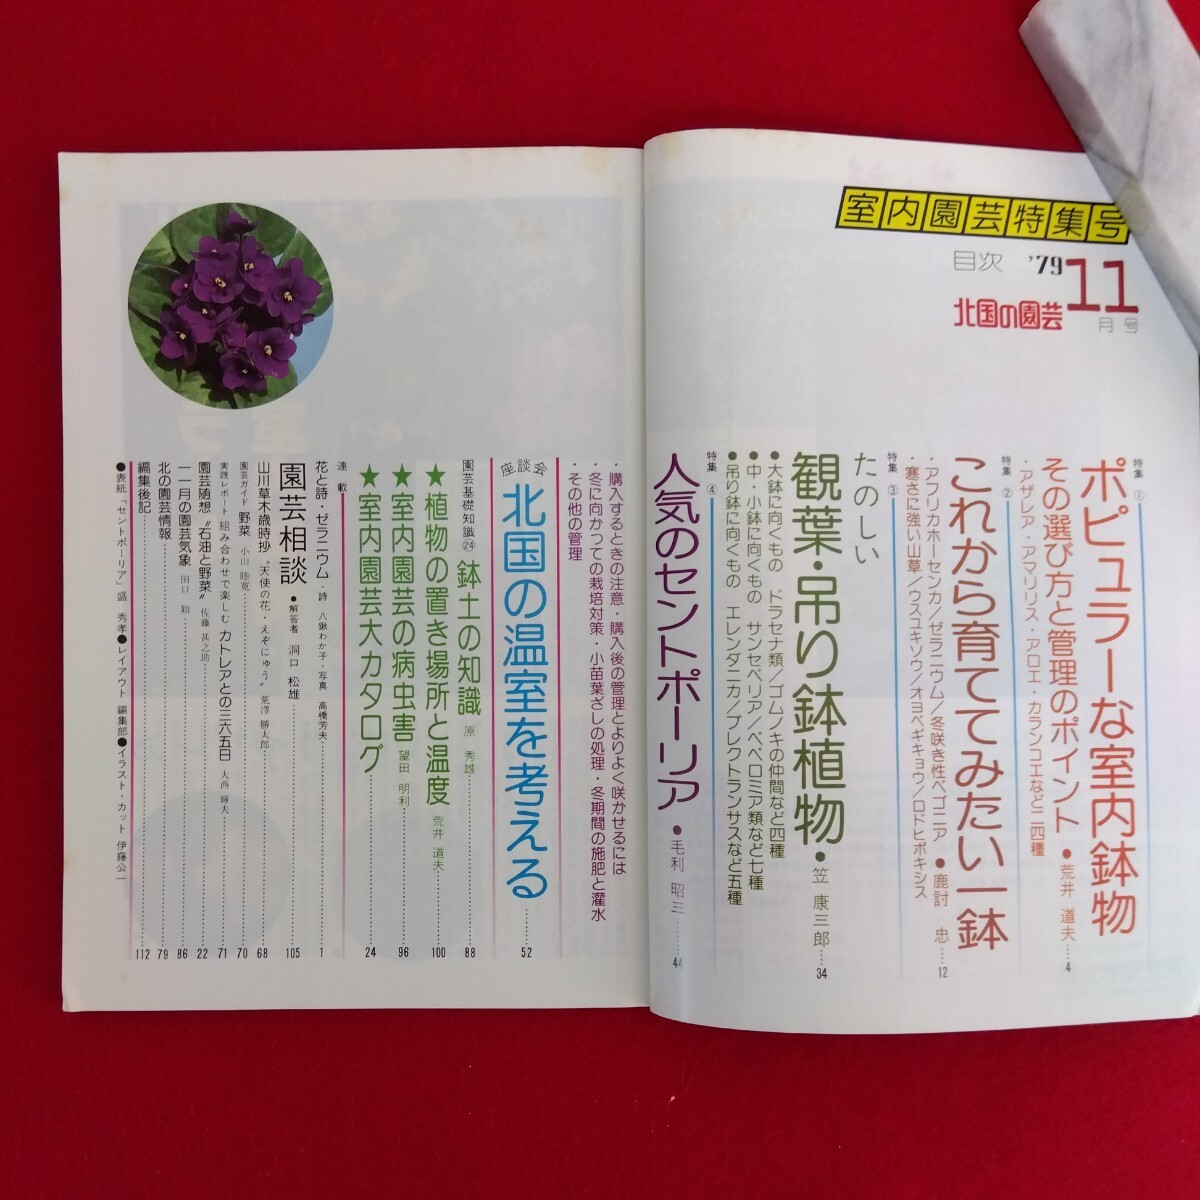 室内園芸特集号
目次 '79 11月号
北国の園芸
特集①
ポピュラーな室内鉢物
その選び方と管理のポイント ●荒井 道夫……4
・アザレア・アマリリス・アロエ・カランコエなど二四種
特集②
これから育ててみたい一鉢
・アフリカホーセンカ/ゼラニウム/冬咲き性ベゴニア ●鹿討 忠……12
・寒さに強い山草/ウスユキソウ/オヨベギキョウ/ロドヒポキシス
特集③
たのしい
観葉・吊り鉢植物 ●笠 康三郎……34
●大鉢に向くもの ドラセナ類/ゴムノキの仲間など四種
●中・小鉢に向くもの サンセベリア/ペペロミア類など七種
●吊り鉢に向くもの エレンダニカ/プレクトランサスなど五種
特集④
人気のセントポーリア ●毛利 昭三……44
・購入するときの注意・購入後の管理とよりよく咲かせるには
・冬に向かっての栽培対策・小苗葉ざしの処理・冬期間の施肥と灌水
・その他の管理
座談会
北国の温室を考える……52
園芸基礎知識㉔ 鉢土の知識 原 秀雄……88
★植物の置き場所と温度 荒井 道夫……100
★室内園芸の病虫害 望田 明利……96
★室内園芸大カタログ……24
連載
花と詩・ゼラニウム・詩 八鍬わか子・写真 高橋芳夫……1
園芸相談 ●解答者 洞口 松雄……105
山川草木歳時抄 “天使の花・えぞにゅう” 荒澤 勝太郎……68
園芸ガイド 野菜 小山 陸寛……70
実践レポート 組み合わせで楽しむ カトレアとの三六五日 大西 輝夫……71
園芸随想 “石油と野菜” 佐藤 甚之助……22
一一月の園芸気象 田口 穎……86
北の園芸情報……79
編集後記……112
●表紙「セントポーリア」盛 秀孝●レイアウト 編集部●イラスト・カット 伊藤公一